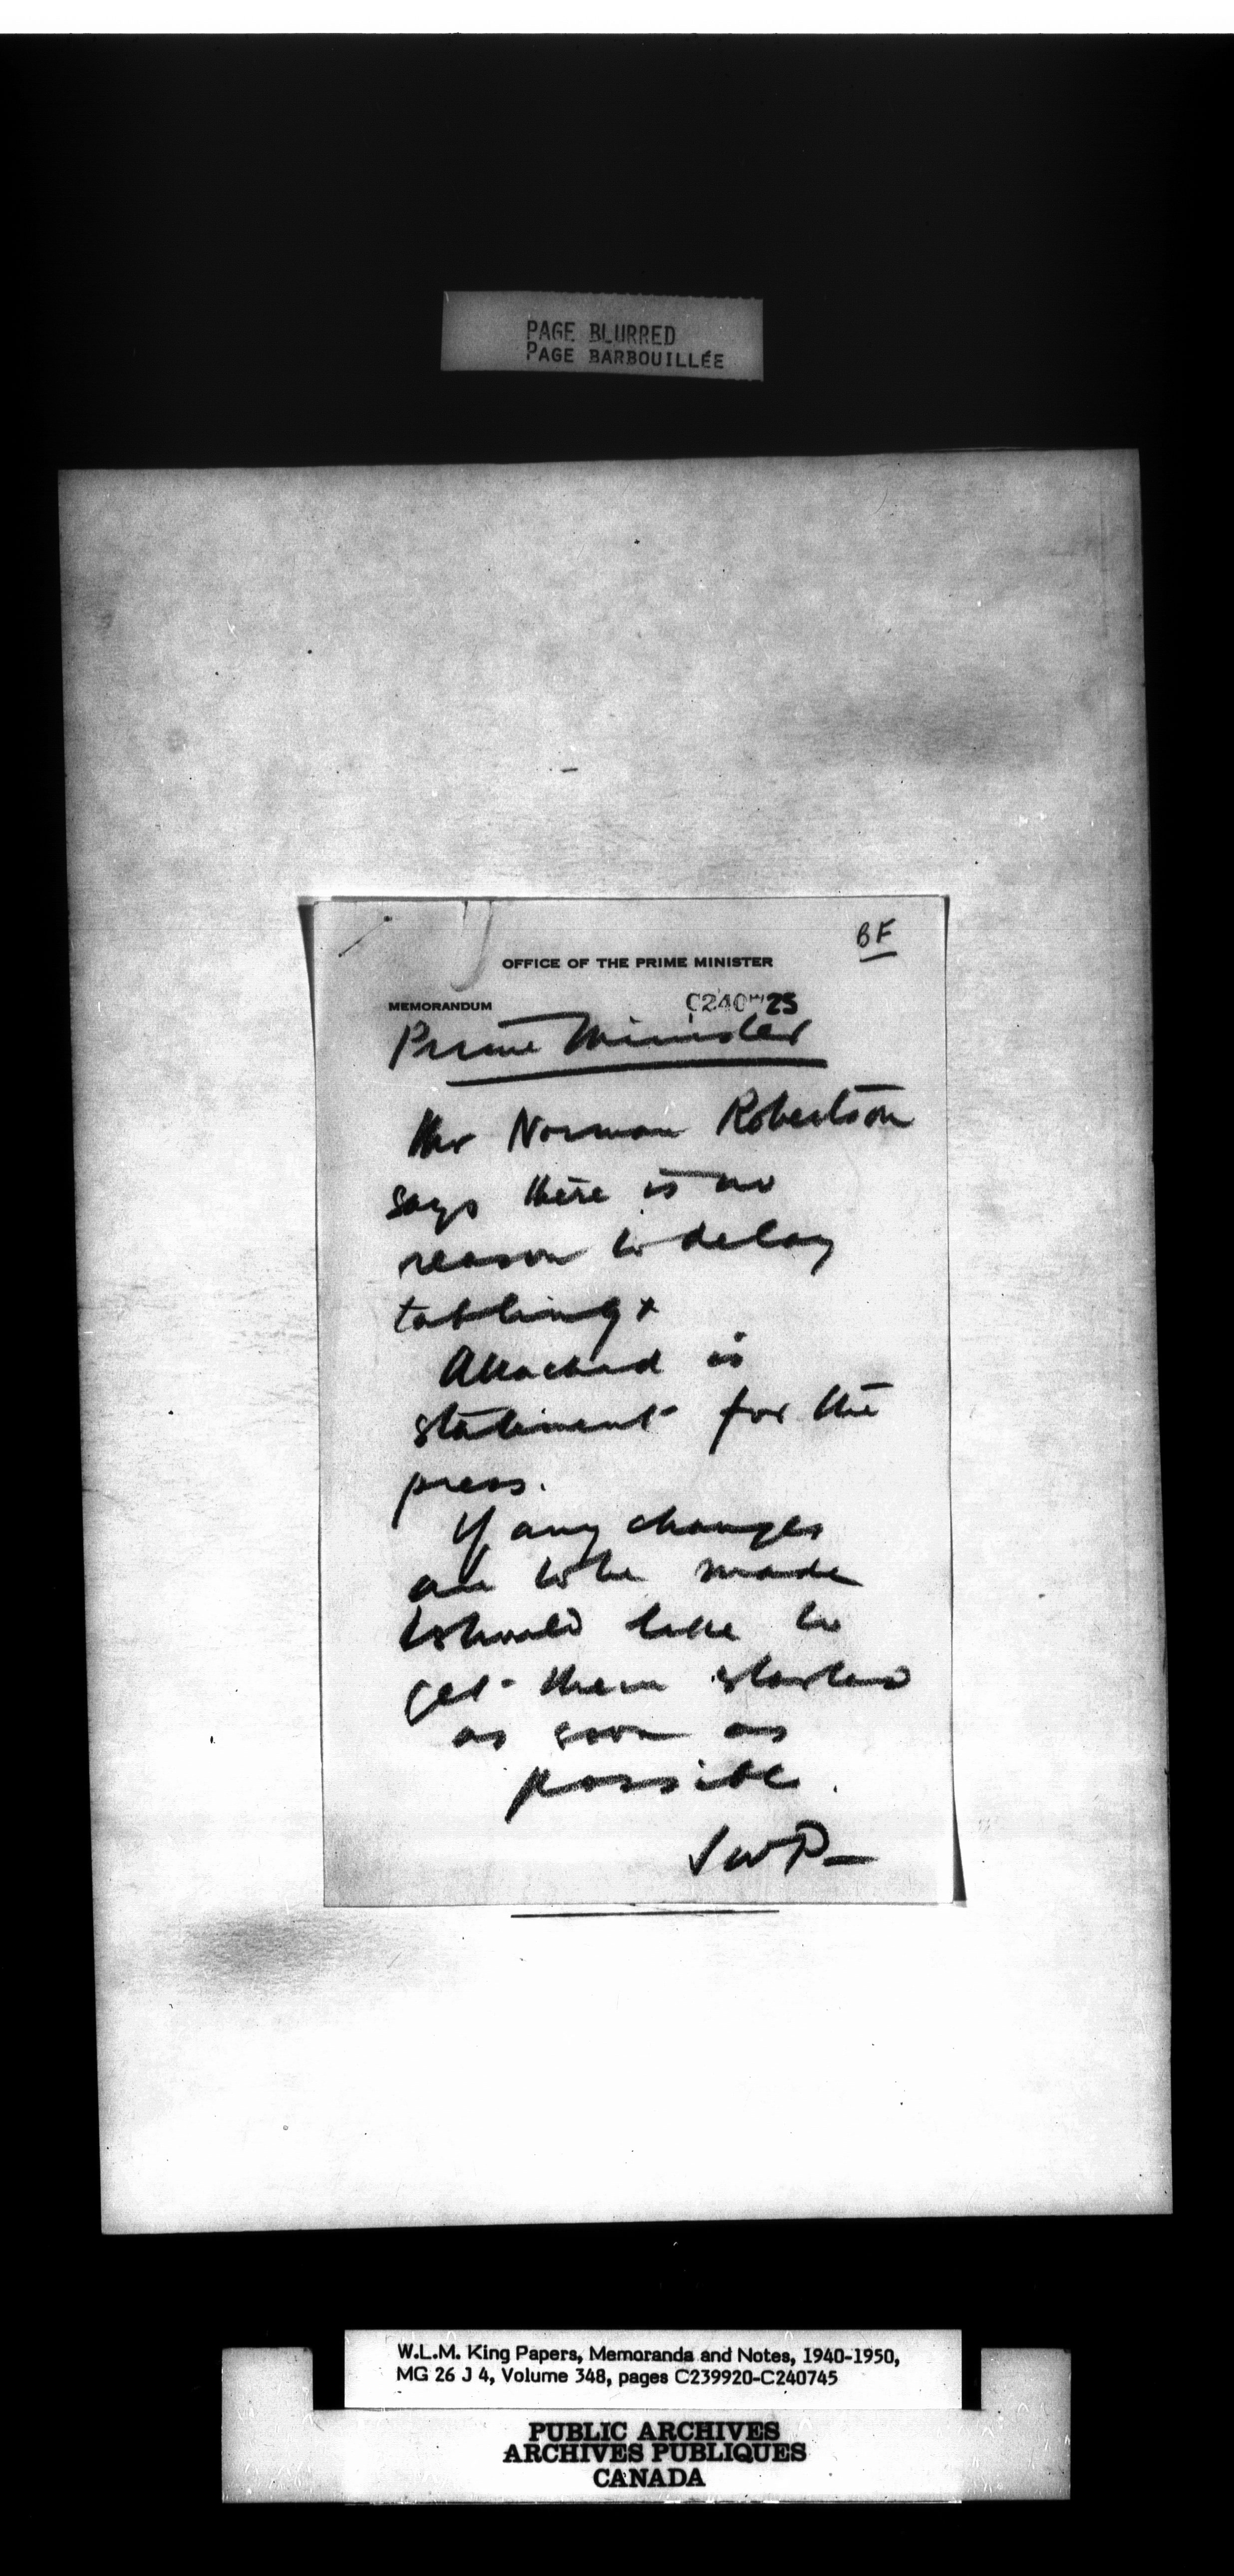 PAGE BLURRED
PAGE BARBOUILLÉE
BF
OFFICE OF THE PRIME MINISTER
MEMORANDUM
Prime Minister
Mr Norman Robertson
says there is no
reason to delay
tabling
Attached is
statement for the
press.
If any changes
are to be made
I should like to
get them started
as soon as
possible.
JWP-
W.L.M. King Papers, Memoranda and Notes, 1940-1950,
MG 26 J 4, Volume 348, pages C239920-C240745
PUBLIC ARCHIVES
ARCHIVES PUBLIQUES
CANADA